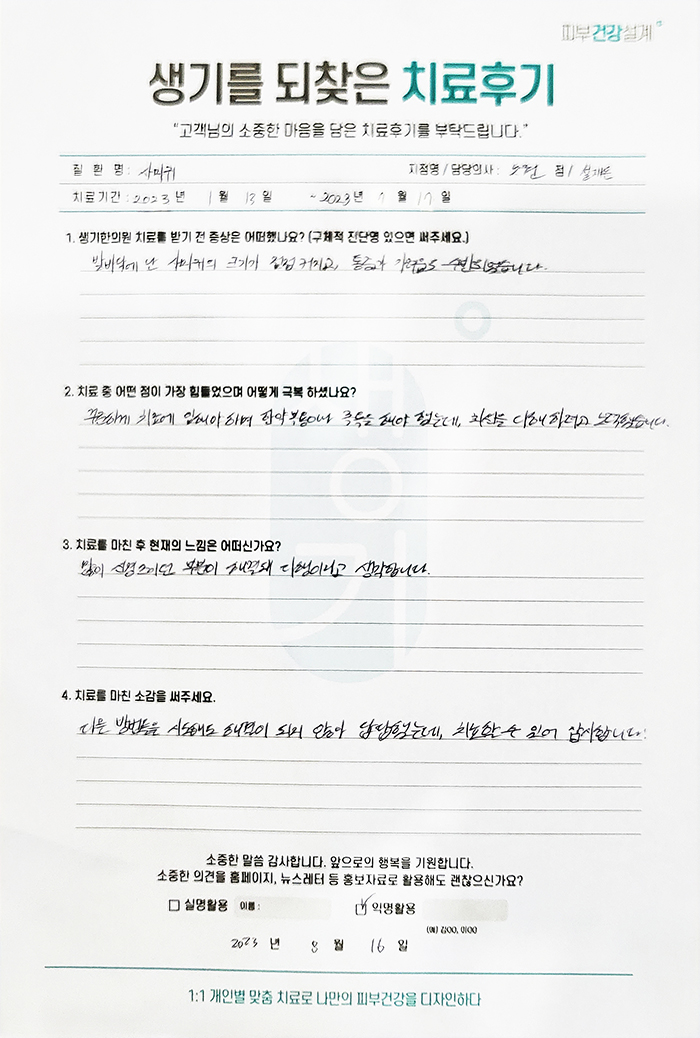 피부건강설계
생기를 되찾은 치료후기
"고객님의 소중한 마음을 담은 치료후기를 부탁드립니다."
질 환 명 : 사마귀 지점명 / 담당의사 : 점 /
치료기간 : 2023 년 1 월 13 일 ~ 2023 년 월 17 일
1. 생기한의원 치료를 받기 전 증상은 어떠했나요? (구체적 진단명 있으면 써주세요.)
발바닥에 난 사마귀의 크기가 점점 커지고, 통증과 가려움도 수반되었습니다.
2. 치료 중 어떤 점이 가장 힘들었으며 어떻게 극복 하셨나요?
꾸준하게 치료에 임해야 하며 한약복용이나 족욕을 해야 했는데, 최선을 다해 하려고 노력했습니다.
3. 치료를 마친 후 현재의 느낌은 어떠신가요?
많이 신경쓰이던 부분이 해결돼 다행이라고 생각합니다.
4. 치료를 마친 소감을 써주세요.
다른 방법들을 시도해도 해결이 되지 않아 답답했는데, 치료할 수 있어 감사합니다!
생기
소중한 말씀 감사합니다. 앞으로의 행복을 기원합니다.
소중한 의견을 홈페이지, 뉴스레터 등 홍보자료로 활용해도 괜찮으신가요?
실명활용 이름 : 익명활용
(예) 김00, 이00
2023 년 8 월 16 일
1:1 개인별 맞춤 치료로 나만의 피부건강을 디자인하다